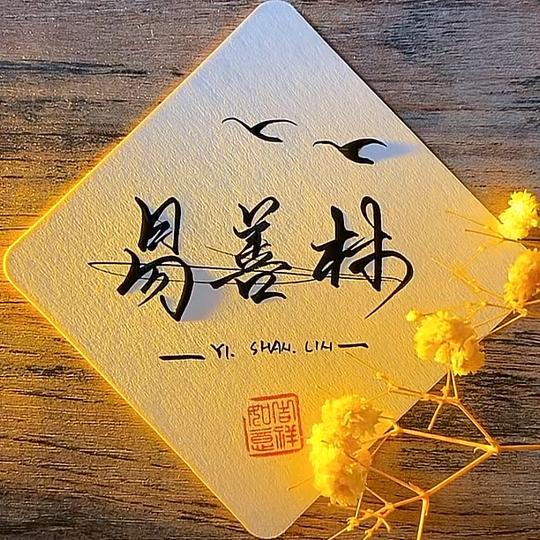 易善林
— YI. SHAN. LIN —
吉祥
如意